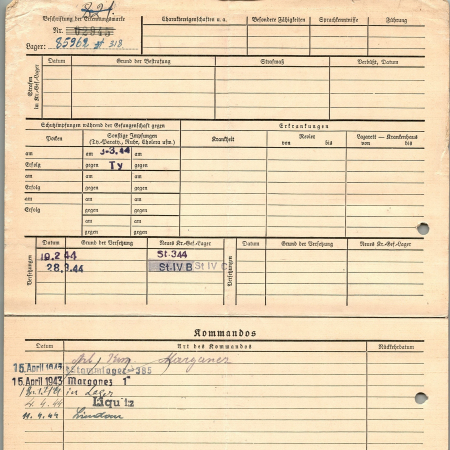 Beschriftung der Erkennungsmarke
Nr. 02945
Lager: 85962 # 318
Charaktereigenschaften u. a.
Besondere Fähigkeiten
Sprachkenntnisse
Führung
Strafen im Kr.-Gef.-Lager
Datum
Grund der Bestrafung
Strafmaß
Verbüßt, Datum
Schutzimpfungen während der Gefangenschaft gegen
Erkrankungen
Pocken
Sonstige Impfungen
(Ty.-Paraty., Ruhr, Cholera usw.)
Krankheit
Revier
von bis
Lazarett — Krankenhaus
von bis
am am 3.44 am
Erfolg gegen Ty gegen
am am am
Erfolg gegen gegen
am am am
Erfolg gegen gegen
am am
gegen gegen
Versetzungen
Datum Grund der Versetzung Neues Kr.-Gef.-Lager
19.2.44 St. 344
28.3.44 St. IV B St IV C
Versetzungen
Datum Grund der Versetzung Neues Kr.-Gef.-Lager
Kommandos
Datum Art des Kommandos Rückkehrdatum
Marganez
15. April 1943 Stammlager 385
15. April 1943 Marganez 1
in Lager
4.4.44
11.4.44